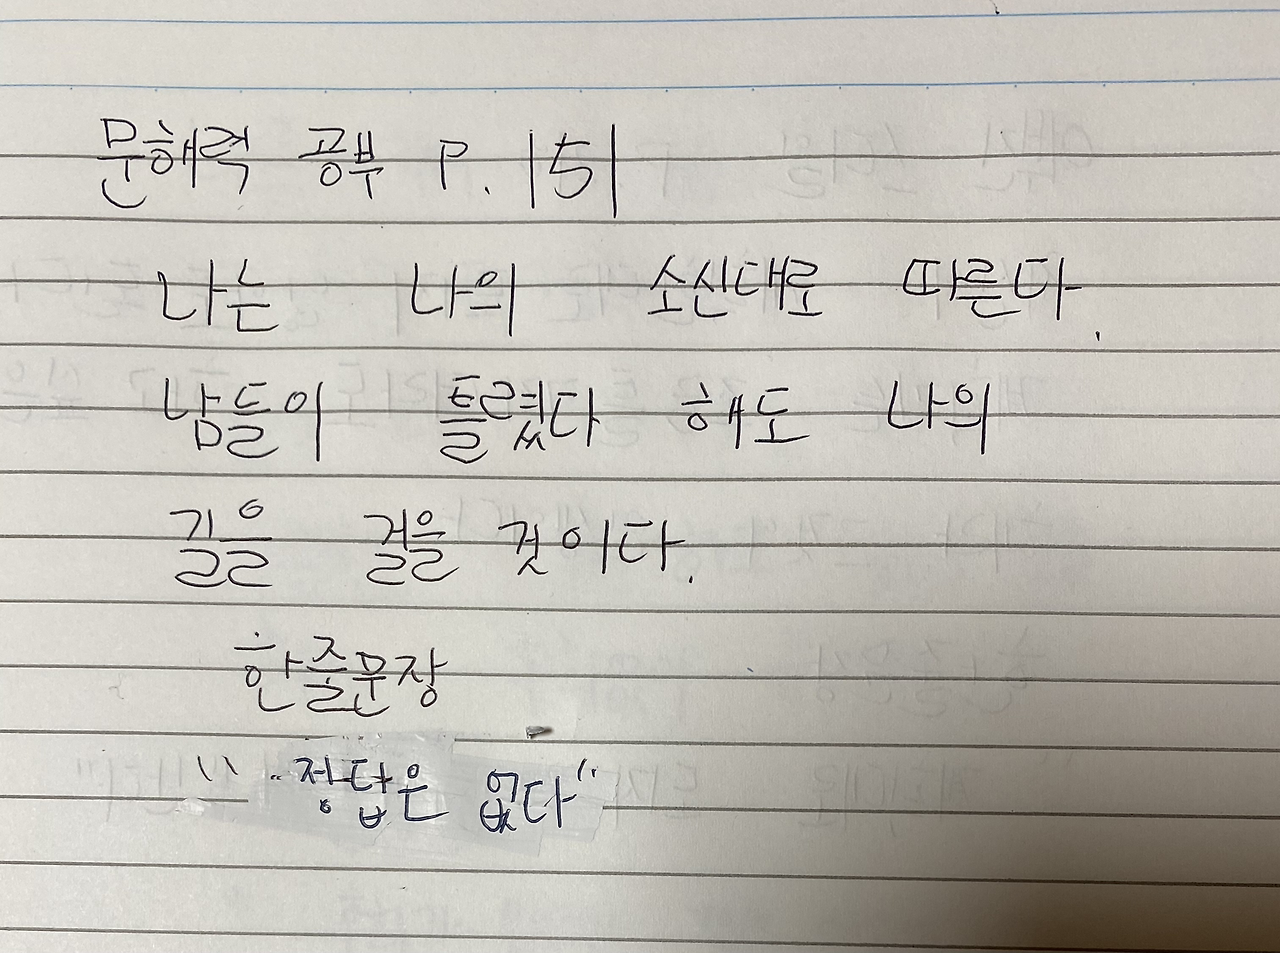 문해력 공부 P. 151
나는 나의 소신대로 따른다.
남들이 틀렸다 해도 나의
길을 걸을 것이다.
한줄문장
"정답은 없다"